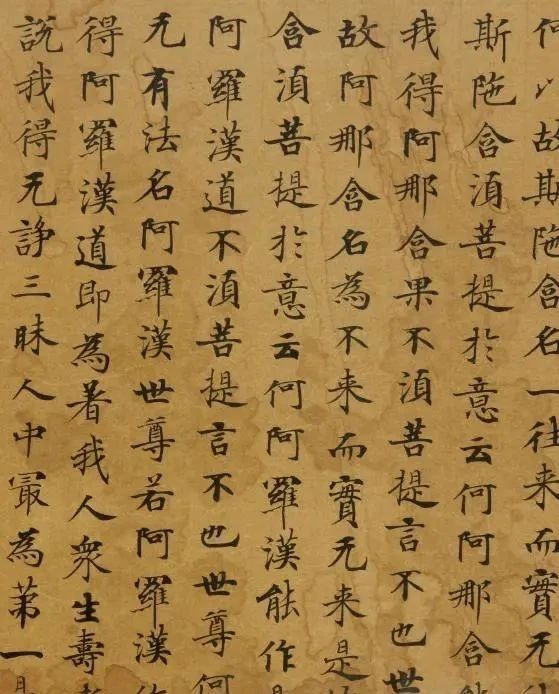 何以故斯陁含名一往来而實无
斯陁含湏菩提扵意云何阿那含
我得阿那含果不湏菩提言不也世
故阿那含名為不来而實无来是
含湏菩提扵意云何阿羅漢能作
阿羅漢道不湏菩提言不也世尊何
无有法名阿羅漢世尊若阿羅漢
得阿羅漢道即為著我人衆生壽
說我得无諍三昧人中冣為苐一